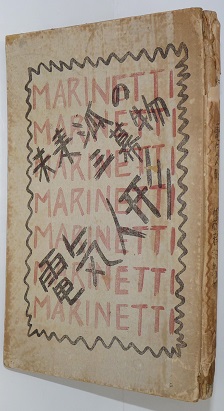 MARINETTI
MARINETTI
MARINETTI
MARINETTI
MARINETTI
MARINETTI
MARINETTI
未来派の
三幕物
電気人形